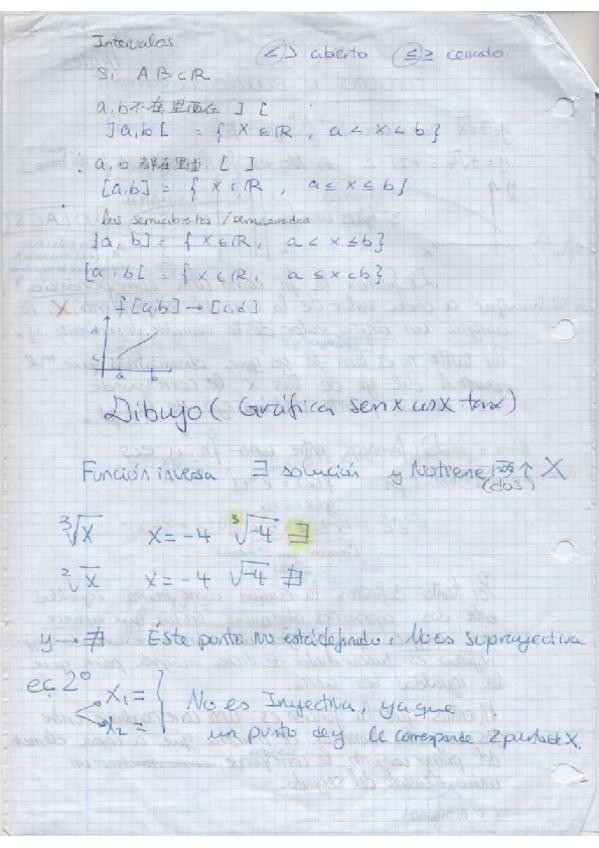 Intervalos <> abierto ≤≥ cerrado
Si A B ⊂ R
a, b 不在里面在 ] [
]a,b[ = { x ∈ R , a < x < b}
a, b 都在里面 [ ]
[a,b] = { x ∈ R , a ≤ x ≤ b}
los semiabiertos / semicerrados
]a, b] = { x ∈ R, a < x ≤ b}
[a, b[ = { x ∈ R, a ≤ x < b}
X f [a,b] → [c,d]
d
c
a b
Dibujo (Gráfica senx cosx tanx)
Función inversa ∃ solución y No tiene ↑ X
(dos)
∛X X = -4 ∛-4 ∃
²√X X = -4 √-4 ∄
y → ∄ Éste punto No está definido. No es suprayectiva
ec 2º
X₁ = No es Inyectiva, ya que
X₂ = un punto de y le corresponde 2 puntos de X.